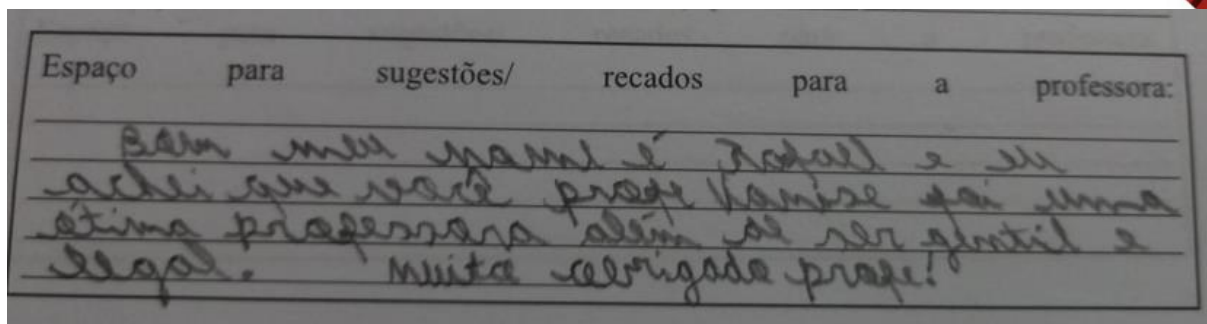 Espaço para sugestões/ recados para a professora:
Bom meu nome é Rafael e eu
achei que você profe Vanise foi uma
ótima professora além de ser gentil e
legal. Muito obrigado profe!